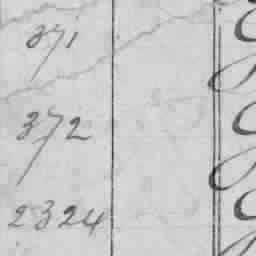 371
372
2324